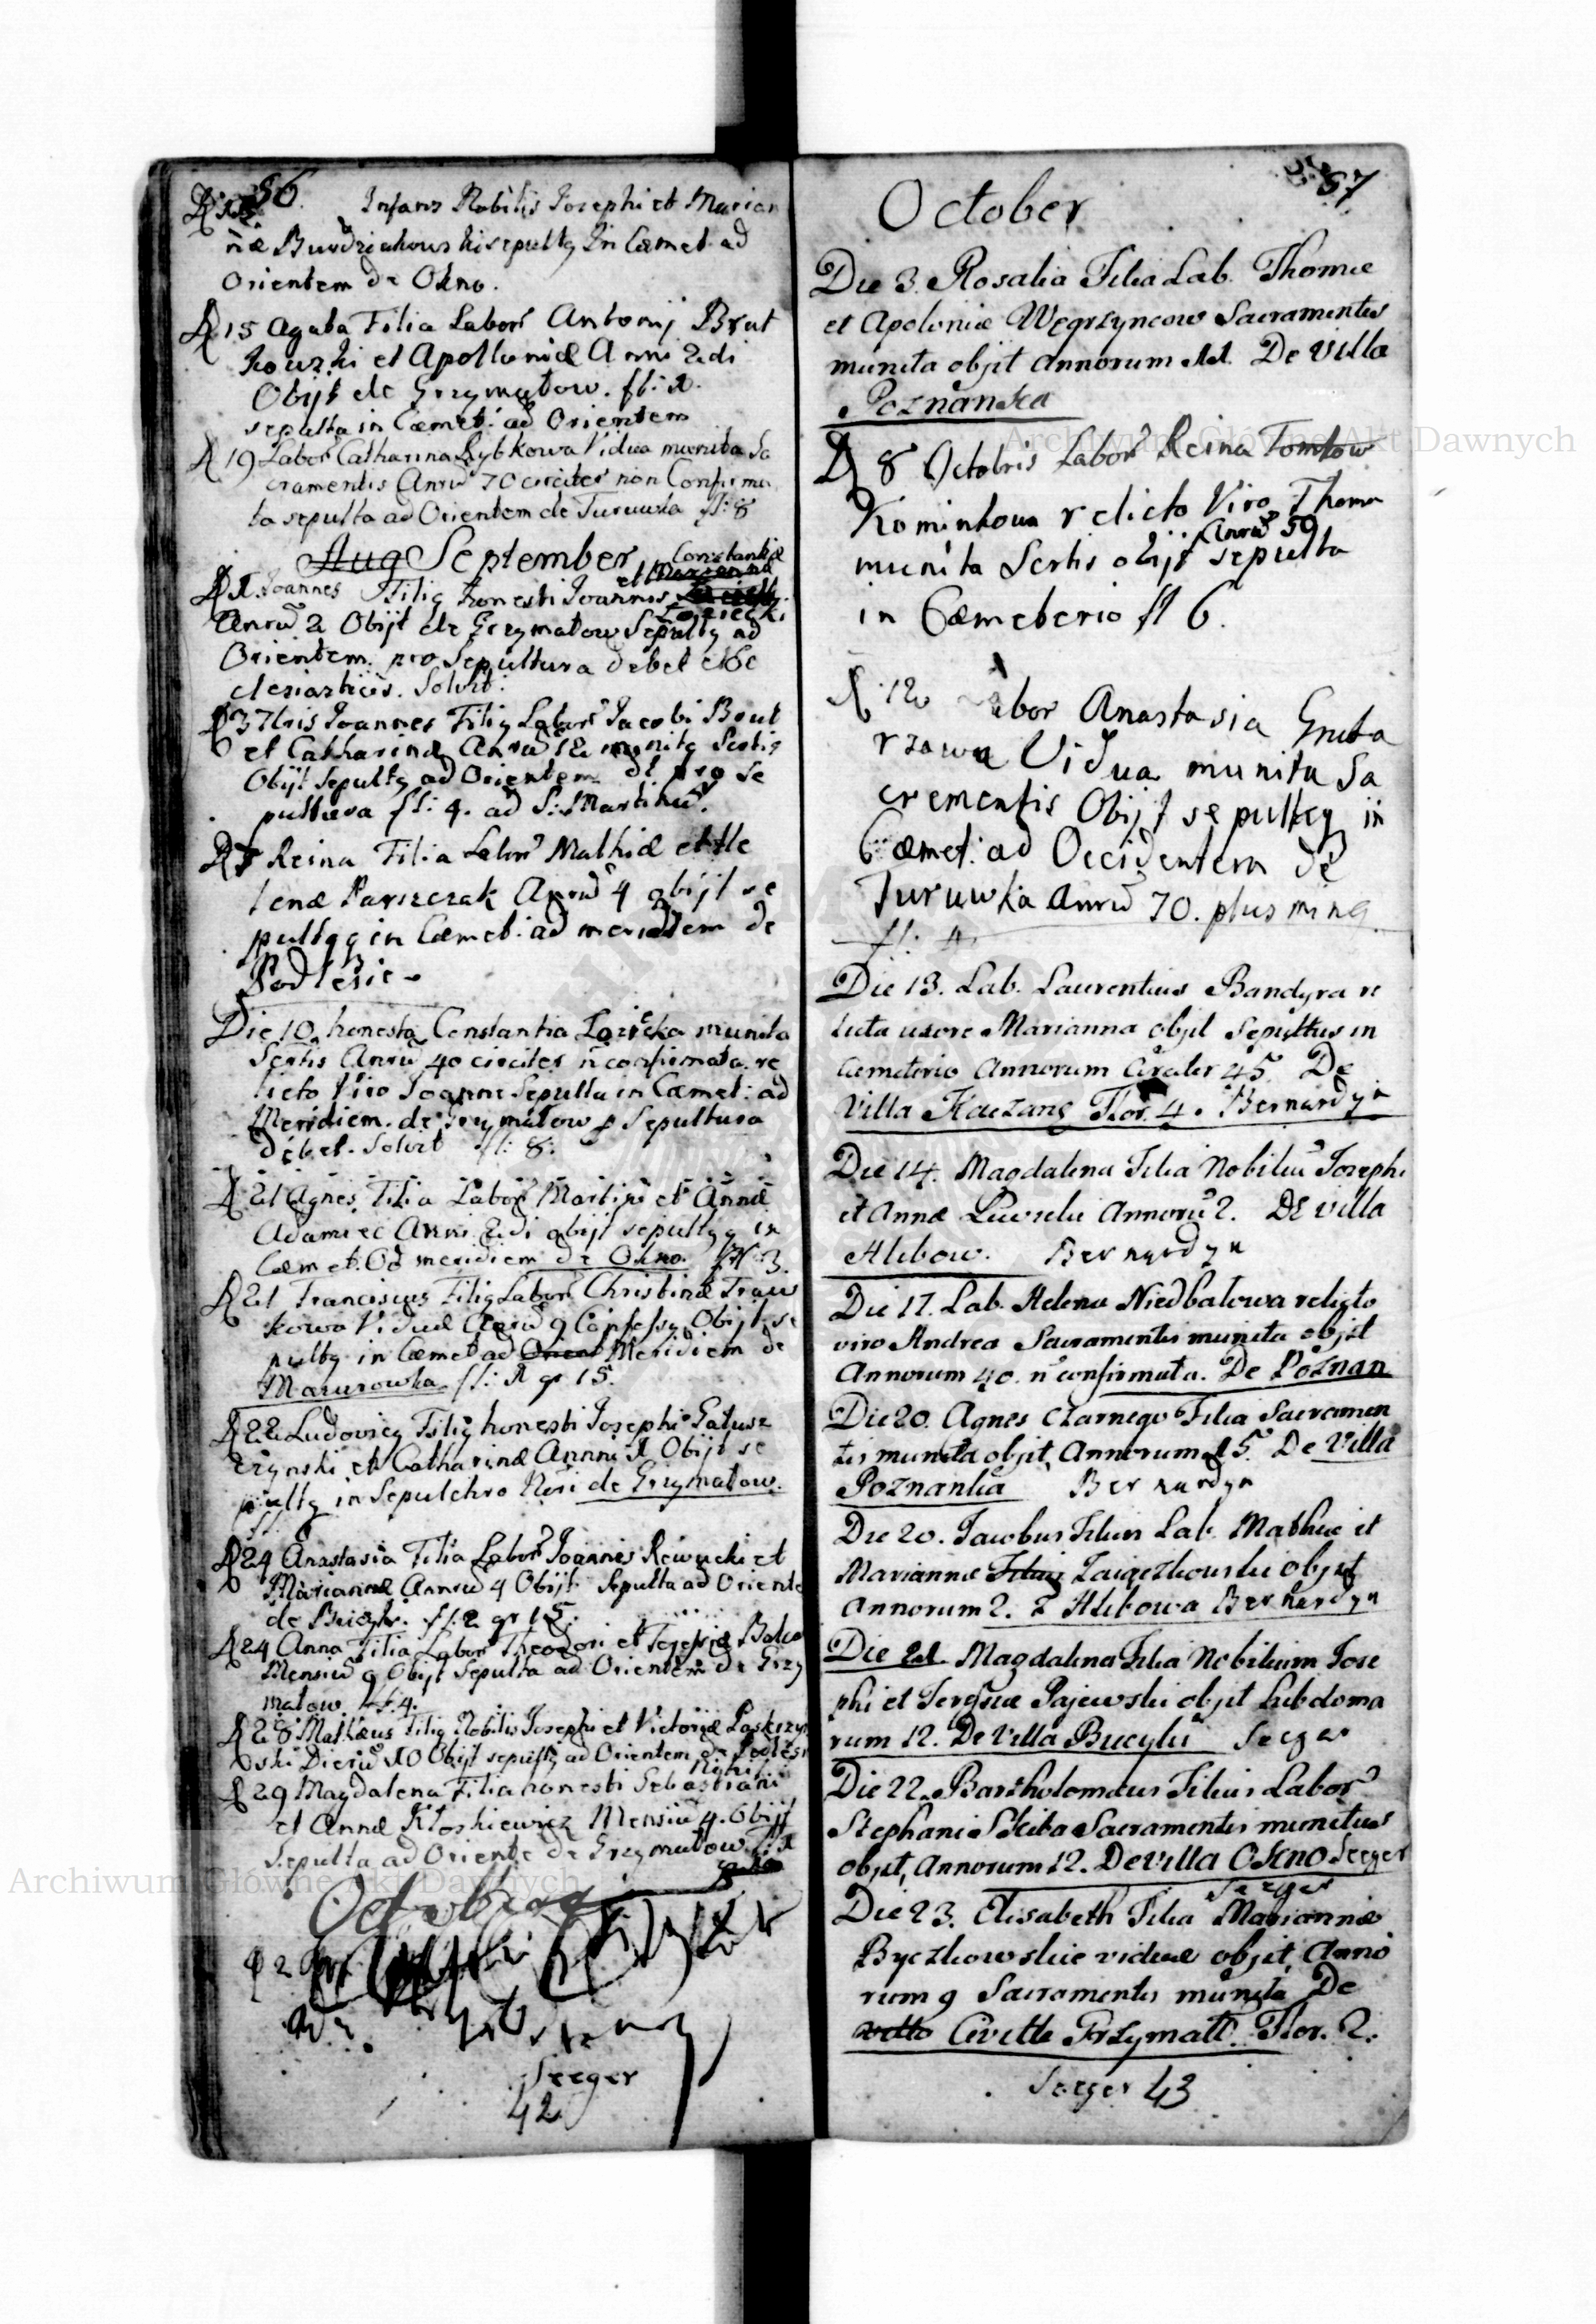 86.
Infans Nobilis Josephi et Marian
næ Budziakowski sepultq in Cæmet ad
Orientem de Okno.
D 15 Agata Filia Labor Antonij Brut
kowski et Apolloniæ Anni 2di
Obijt de Grzymałow. fl: 1.
sepulta in Cæmet: ad Orientem
D 19 Labor Catharina Rybkowa Vidua munita Sa
cramentis Anrū 70 circiter non Confirma
ta sepulta ad Orientem de Turuwka fl: 8
Aug September
Constantiæ
et Mariannæ
D 1. Joannes Filiq honesti Joannis
Łoziecki
Anrū 2 Obijt de Grzymałow Sepultq ad
Orientem. pro Sepultura debet et Ec
clesiasticis. Solvit:
D 3 7bris Joannes Filiq Labor Jacobi Brut
et Catharinæ Anrū 12 munitq Scrtis
Obijt Sepultq ad Orientem dt pro Se
pultura fl: 4. ad S: Martinū.
D 7 Reina Filia Labor Mathiæ et He
lenæ Parszczak Anrū 4 obijt se
pultq q in Cæmet: ad meridiem de
Podlesie
Die 10 honesta Constantia Łozicka munita
Scrtis Anrū 40 circiter n confirmata. re
licto Viro Joanne Sepulta in Cæmet: ad
Meridiem. de Grzymałow p Sepultura
debet. Solvit fl: 8:
D 21 Agnes Filia Labor Martini et Annæ
Adamiec Anni 2di obijt sepultq q in
Cæmet. Ad meridiem de Okno. fl 3.
D 21 Franciscus Filiq Labor Christinæ Traw
kowa Viduæ Anrū 9 Confessq Obijt se
pultq in Cæmet ad Orient Meridiem de
Mazurowka fl: 1 gr 15.
D 22 Ludovicq Filiq honesti Josephi Gałusz
czynski et Catharinæ Annni 1 Obijt se
pultq in Sepulchro Nori de Grzymałow.
fl
D 24 Anastasia Filia Labor Joannis Rewucki et
Mariannæ Anrū 4 Obijt Sepulta ad Oriente
de fl 2 gr 15.
D 24 Anna Filia Labor Theodori et
Mensiū 9 Obijt Sepulta ad Orientem de Grzy
małow fl: 4.
D 28 Mathæus Filiq Nobilis Josephi et Victoriæ Paskrzyń
ski Dierū 10 Obijt sepultq ad Orientem de Podlesi
Nihil
D 29 Magdalena Filia honesti Sebastiani
et Annæ Kłoskiewicz Mensiū 4. Obijt
Sepulta ad Oriente de Grzymałow fl: 1
October
D 2
Seeger
42
87
October
Die 3. Rosalia Filia Lab. Thomæ
et Apoloniæ Węgrzyncow Sacramentis
munita objit annorum 11. De Villa
Poznanka
D 8 Octobris Labor Reina Tomkow
Kominkowa relicto Viro Thoma
Anrū 50
munita Scrtis obijt sepulta
in Cæmeterio fl 6.
D 12 Labor Anastasia Gnita
rzowa Vidua munita Sa
crementis Obijt sepultq in
Cæmet: ad Occidentem de
Turuwka Anrū 70. plus minq
fl: 4.
Die 13. Lab. Laurentius Bandyra re
licta uxore Marianna objit Sepultus in
Cæmeterio Annorum Circiter 45. De
Villa Kaczang Flor. 4. Bernardyn
Die 14. Magdalena Filia Nobiliū Josephi
et Annæ Annorū 2. DE villa
Hlibow. Bernardyn
Die 17. Lab. Helena Niedbałowa relicto
viro Andrea Sacramentis munita objit
Annorum 40. n confirmata. De Poznan
Die 20. Agnes Czarnego Filia Sacramen
tis munita objit, Annorum 15. De Villa
Poznanka Bernardyn
Die 20. Jacobus Filius Lab. Mathiæ et
Mariannæ Filiæ Zaiączkowski objit
Annorum 2. z Hlibowa Bernardyn
Die 21. Magdalena Filia Nobilium Jose
phi et Teresiæ Pajewski objit hebdoma
rum 12. De Villa Bucyki Seeger
Die 22. Bartholomæus Filius Labor
Stephani Skiba Sacramentis munitus
objit, Annorum 12. De Villa OKNO Seeger
Seeger
Die 23. Elisabeth Filia Mariannæ
Byczkowskie viduæ objit, Anno
rum 9 Sacramentis munita De
villa Civitte Grzymałł. Flor. 2.
Seeger 43
Archiwum Główne Akt Dawnych
Archiwum Główne Akt Dawnych